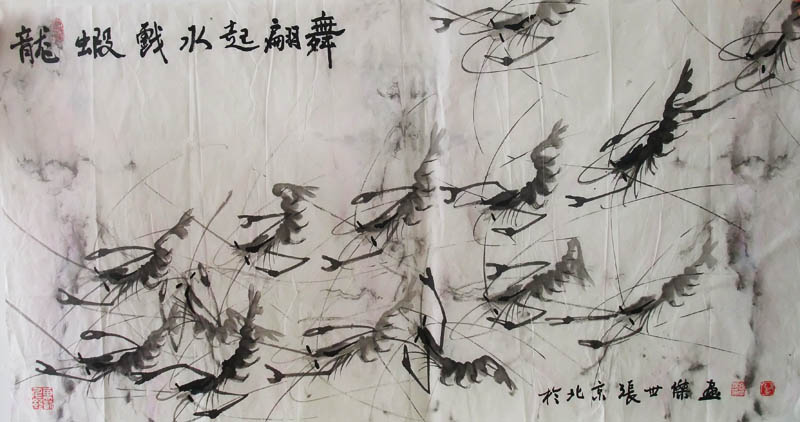 龍蝦戲水起翩舞
於北京張世傑畫